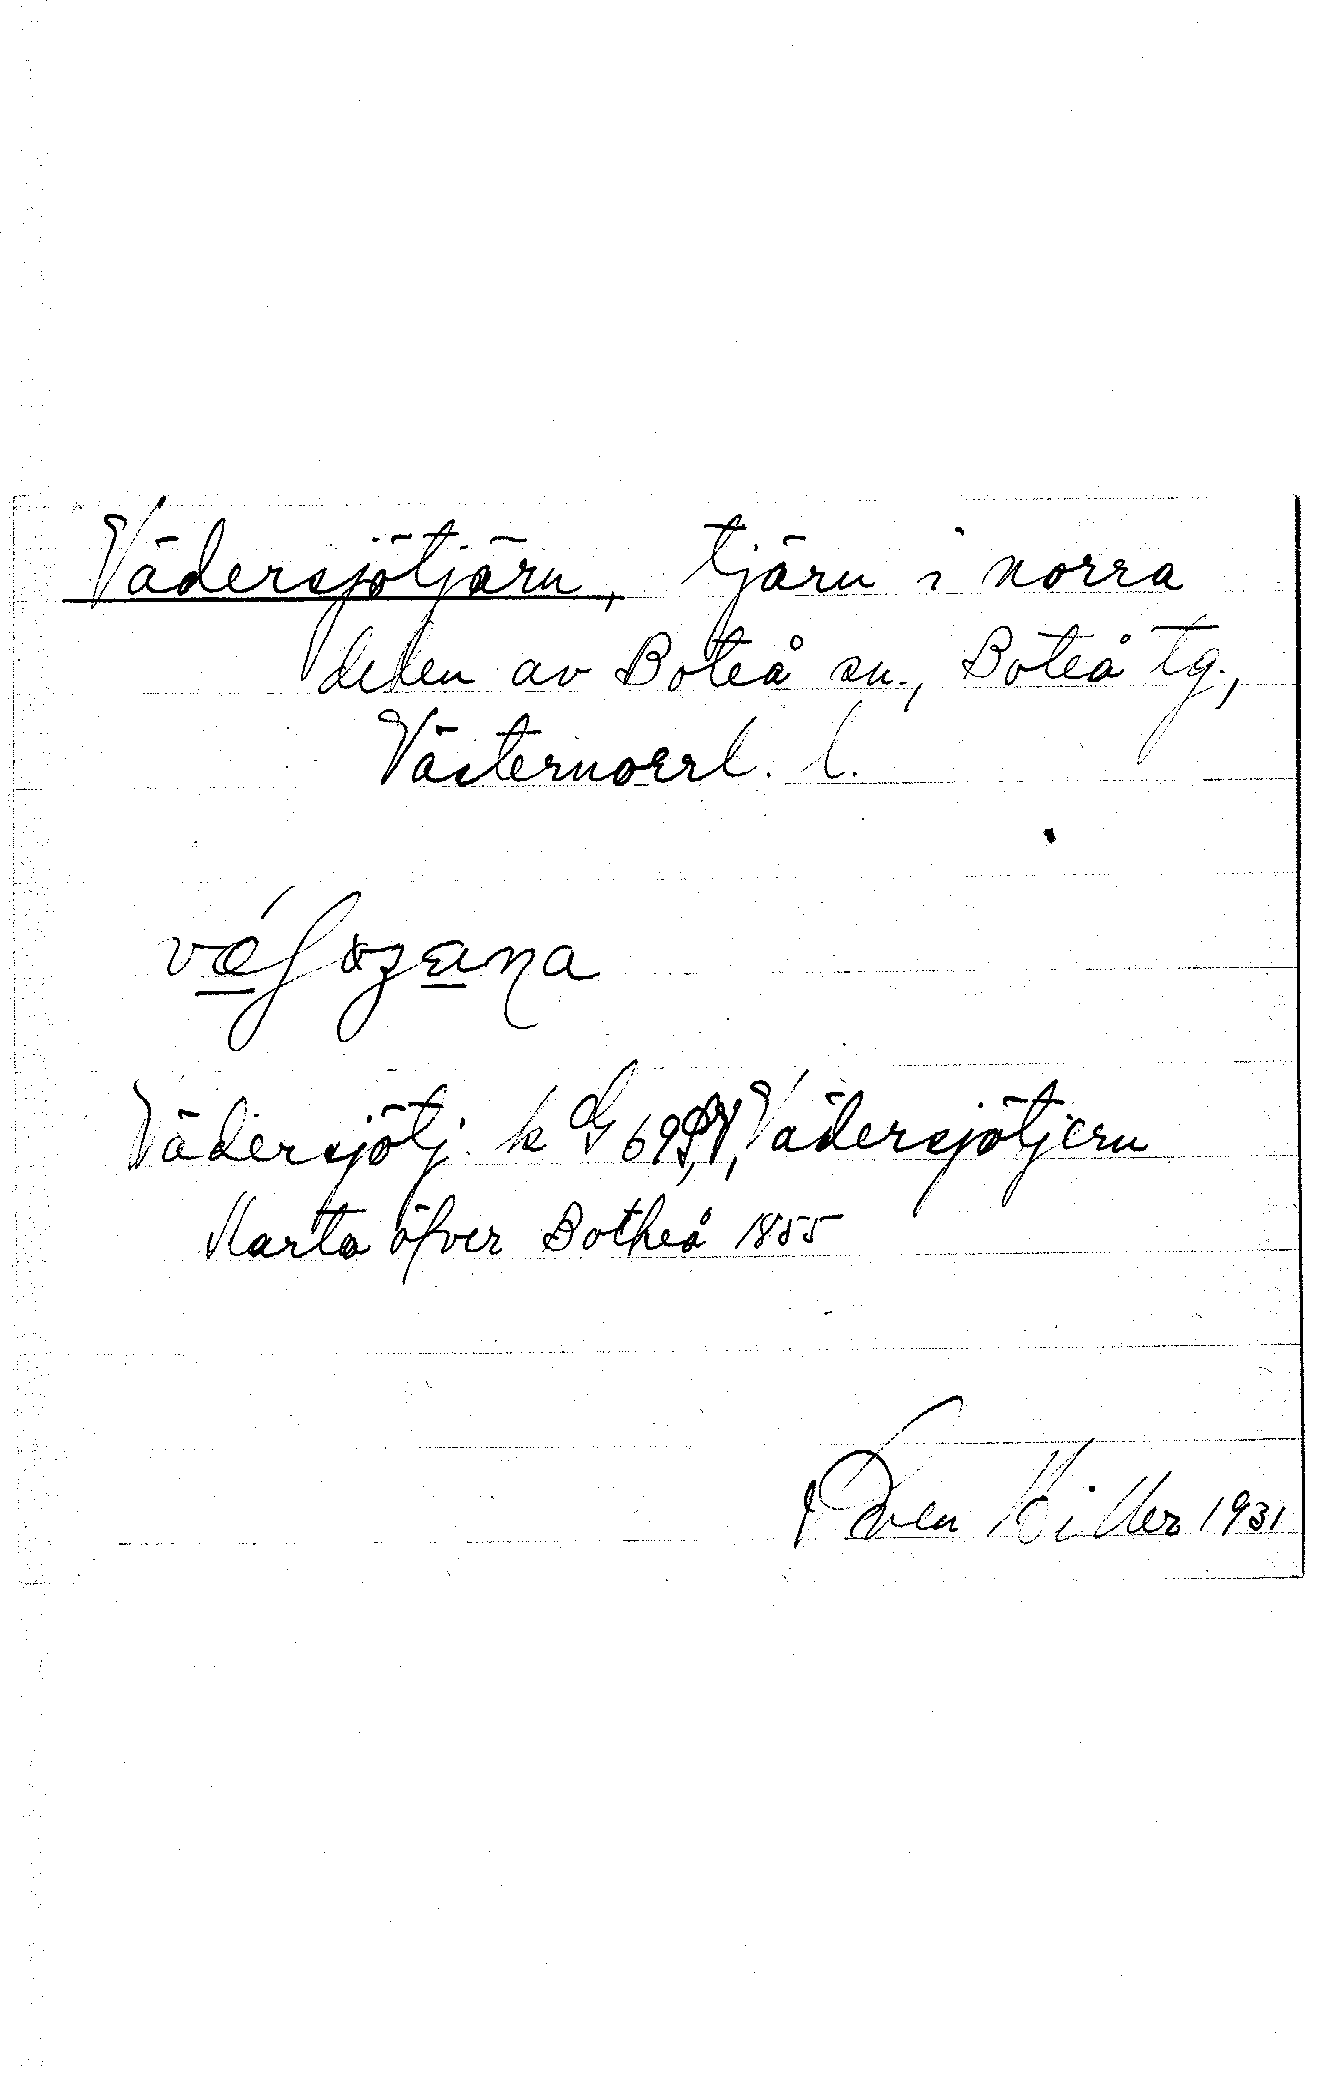 Vädersjötjärn, tjärn i norra
delen av Boteå sn., Boteå tg.,
Västernorrl. l.
Vädersjötj. k G 69 Vädersjötjern
Karta öfver Botheå 1855
Sven Hiller 1931